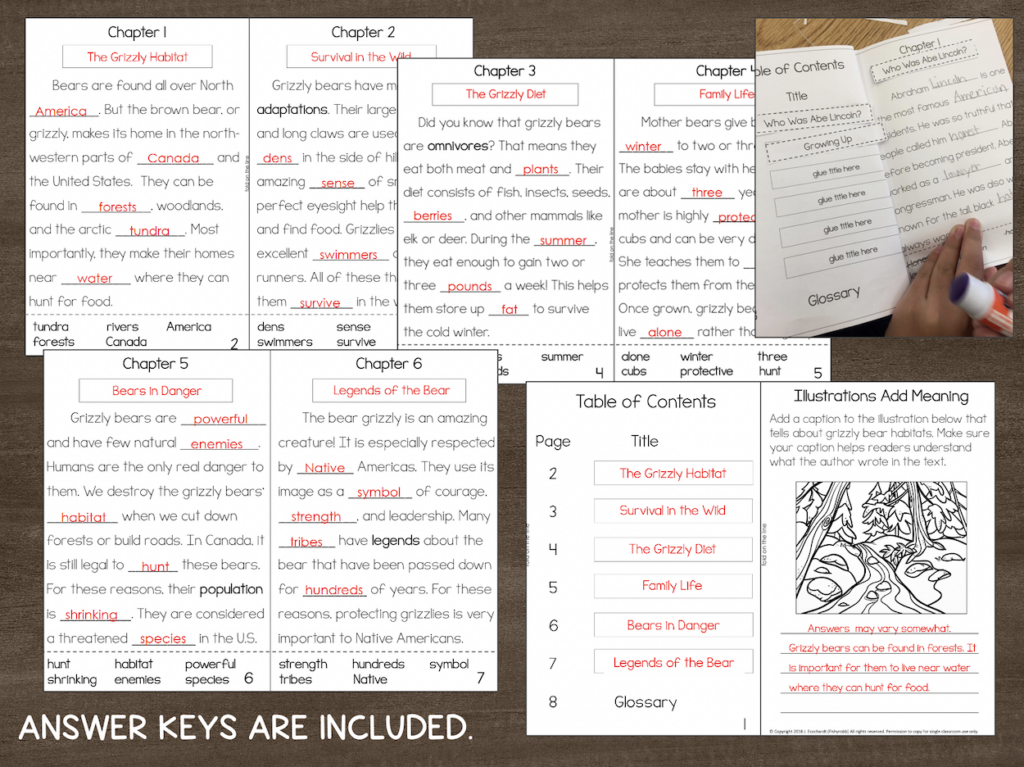 Chapter 1
The Grizzly Habitat
Bears are found all over North
America. But the brown bear, or
grizzly, makes its home in the north-
western parts of Canada and
the United States. They can be
found in forests, woodlands,
and the arctic tundra. Most
importantly, they make their homes
near water where they can
hunt for food.
tundra rivers America
forests Canada
2
fold on the line
Chapter 2
Survival in the Wild
Grizzly bears have m
adaptations. Their large
and long claws are used
dens in the side of hil
amazing sense of s
perfect eyesight help th
and find food. Grizzlies
excellent swimmers
runners. All of these th
them survive in the w
dens sense
swimmers survive
Chapter 3
The Grizzly Diet
Did you know that grizzly bears
are omnivores? That means they
eat both meat and plants. Their
diet consists of fish, insects, seeds,
berries, and other mammals like
elk or deer. During the summer,
they eat enough to gain two or
three pounds a week! This helps
them store up fat to survive
the cold winter.
s summer
ds
4
fold on the line
Chapter 4
Family Life
Mother bears give b
winter to two or thre
The babies stay with he
are about three ye
mother is highly protec
cubs and can be very d
She teaches them to
protects them from the
Once grown, grizzly bea
live alone rather tha
alone winter three
cubs protective hunt
5
ble of Contents
Title
Who Was Abe Lincoln?
Growing Up
glue title here
glue title here
glue title here
glue title here
Glossary
Chapter 1
Who Was Abe Lincoln?
Abraham Lincoln is one
the most famous American
idents. He was so truthful that
people called him honest Ab
efore becoming president, Abe
orked as a lawyer an
ongressman. He was also w
nown for the tall, black
always wo
Chapter 5
Bears in Danger
Grizzly bears are powerful
and have few natural enemies.
Humans are the only red danger to
them. We destroy the grizzly bears'
habitat when we cut down
forests or build roads. In Canada, it
is still legal to hunt these bears.
For these reasons, their population
is shrinking. They are considered
a threatened species in the U.S.
hunt habitat powerful
shrinking enemies species
6
Chapter 6
Legends of the Bear
The bear grizzly is an amazing
creature! It is especially respected
by Native Americas. They use its
image as a symbol of courage,
strength, and leadership. Many
tribes have legends about the
bear that have been passed down
for hundreds of years. For these
reasons, protecting grizzlies is very
important to Native Americans.
strength hundreds symbol
tribes Native
7
Table of Contents
Page Title
2 The Grizzly Habitat
3 Survival in the Wild
4 The Grizzly Diet
5 Family Life
6 Bears in Danger
7 Legends of the Bear
8 Glossary
1
fold on the line
fold on the line
Illustrations Add Meaning
Add a caption to the illustration below that
tells about grizzly bear habitats. Make sure
your caption helps readers understand
what the author wrote in the text.
Answers may vary somewhat.
Grizzly bears can be found in forests. It
is important for them to live near water
where they can hunt for food.
ANSWER KEYS ARE INCLUDED.